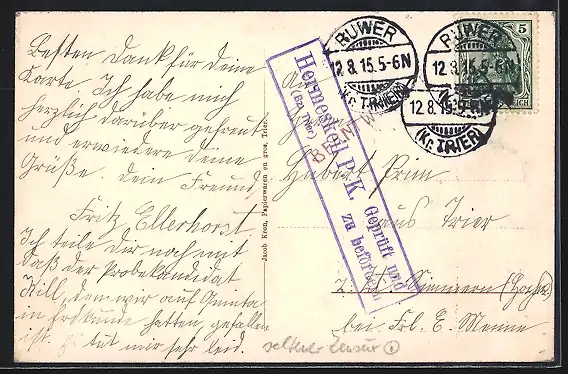 Besten Dank für deine
Karte. Ich habe mich
herzlich darüber gefreut
und erwiedere deine
Grüße. Dein Freund
Fritz Ellerhorst
Ich teile dir noch mit
daß der Probekandidat
Kill, den wir auf Quinta
in Erdkunde hatten, gefallen
ist. Es tut mir sehr leid.
Jacob Kron, Papierwaren en gros, Trier.
RUWER
12.8.15.5-6N
(Kr. TRIER)
RUWER
12.8.15.5-6N
12.8.15.5-6N
(Kr. TRIER)
5
REICH
Hermeskeil P.K.
(Bz. Trier)
Geprüft und
zu befördern
An
Hubert Prim
aus Trier
z. Zt. Simmern
bei Frl. E. Menne
seltener Zensur